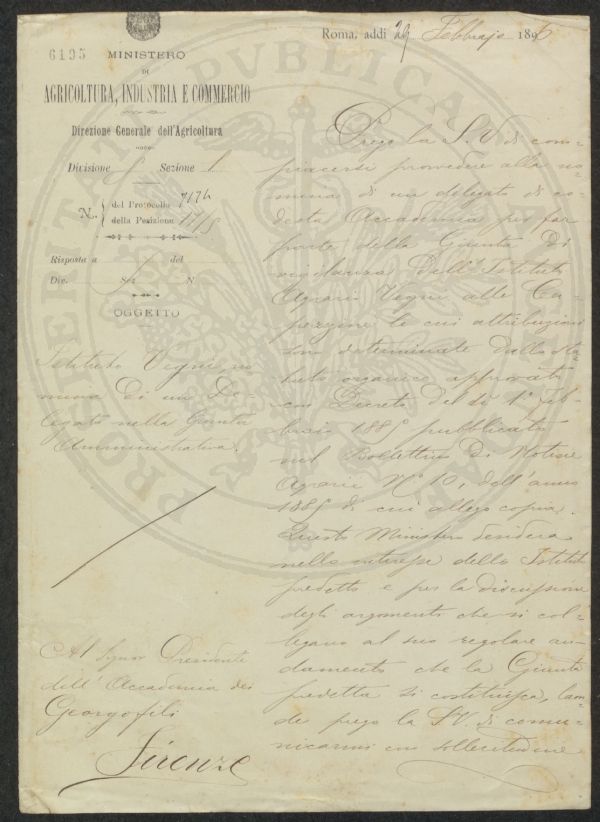 Roma, addì 29 Febbrajo 1896
6195
MINISTERO
DI
AGRICOLTURA, INDUSTRIA E COMMERCIO
Direzione Generale dell'Agricoltura
Divisione Sezione 1
N. del Protocollo 7174
della Posizione
Risposta a del
Div. Sez N
OGGETTO
Istituto Vegni no-
mina di un De-
legato nella Giunta
Amministrativa.
Al Signor Presidente
dell'Accademia dei
Georgofili
Firenze
Prego la S. V. di com-
piacersi provvedere alla no-
mina di un delegato di co-
desta Accademia per far
parte della Giunta di
vigilanza dell'Istituto
Agrario Vegni alle Ca-
pezzine le cui attribuzioni
sono determinate dallo sta-
tuto organico approvato
con Decreto del dì 1° feb-
braio 1885 pubblicato
nel Bollettino di Notizie
Agrarie N° 10, dell'anno
1885 di cui allego copia.
Questo Ministero desidera
nello interesse dello Istituto
predetto e per la discussione
degli argomenti che si col-
legano al suo regolare an-
damento che la Giunta
predetta si costituisca, laon-
de prego la S.V. di comu-
nicarmi con sollecitudine
PROSPERITATI PVBLICAE